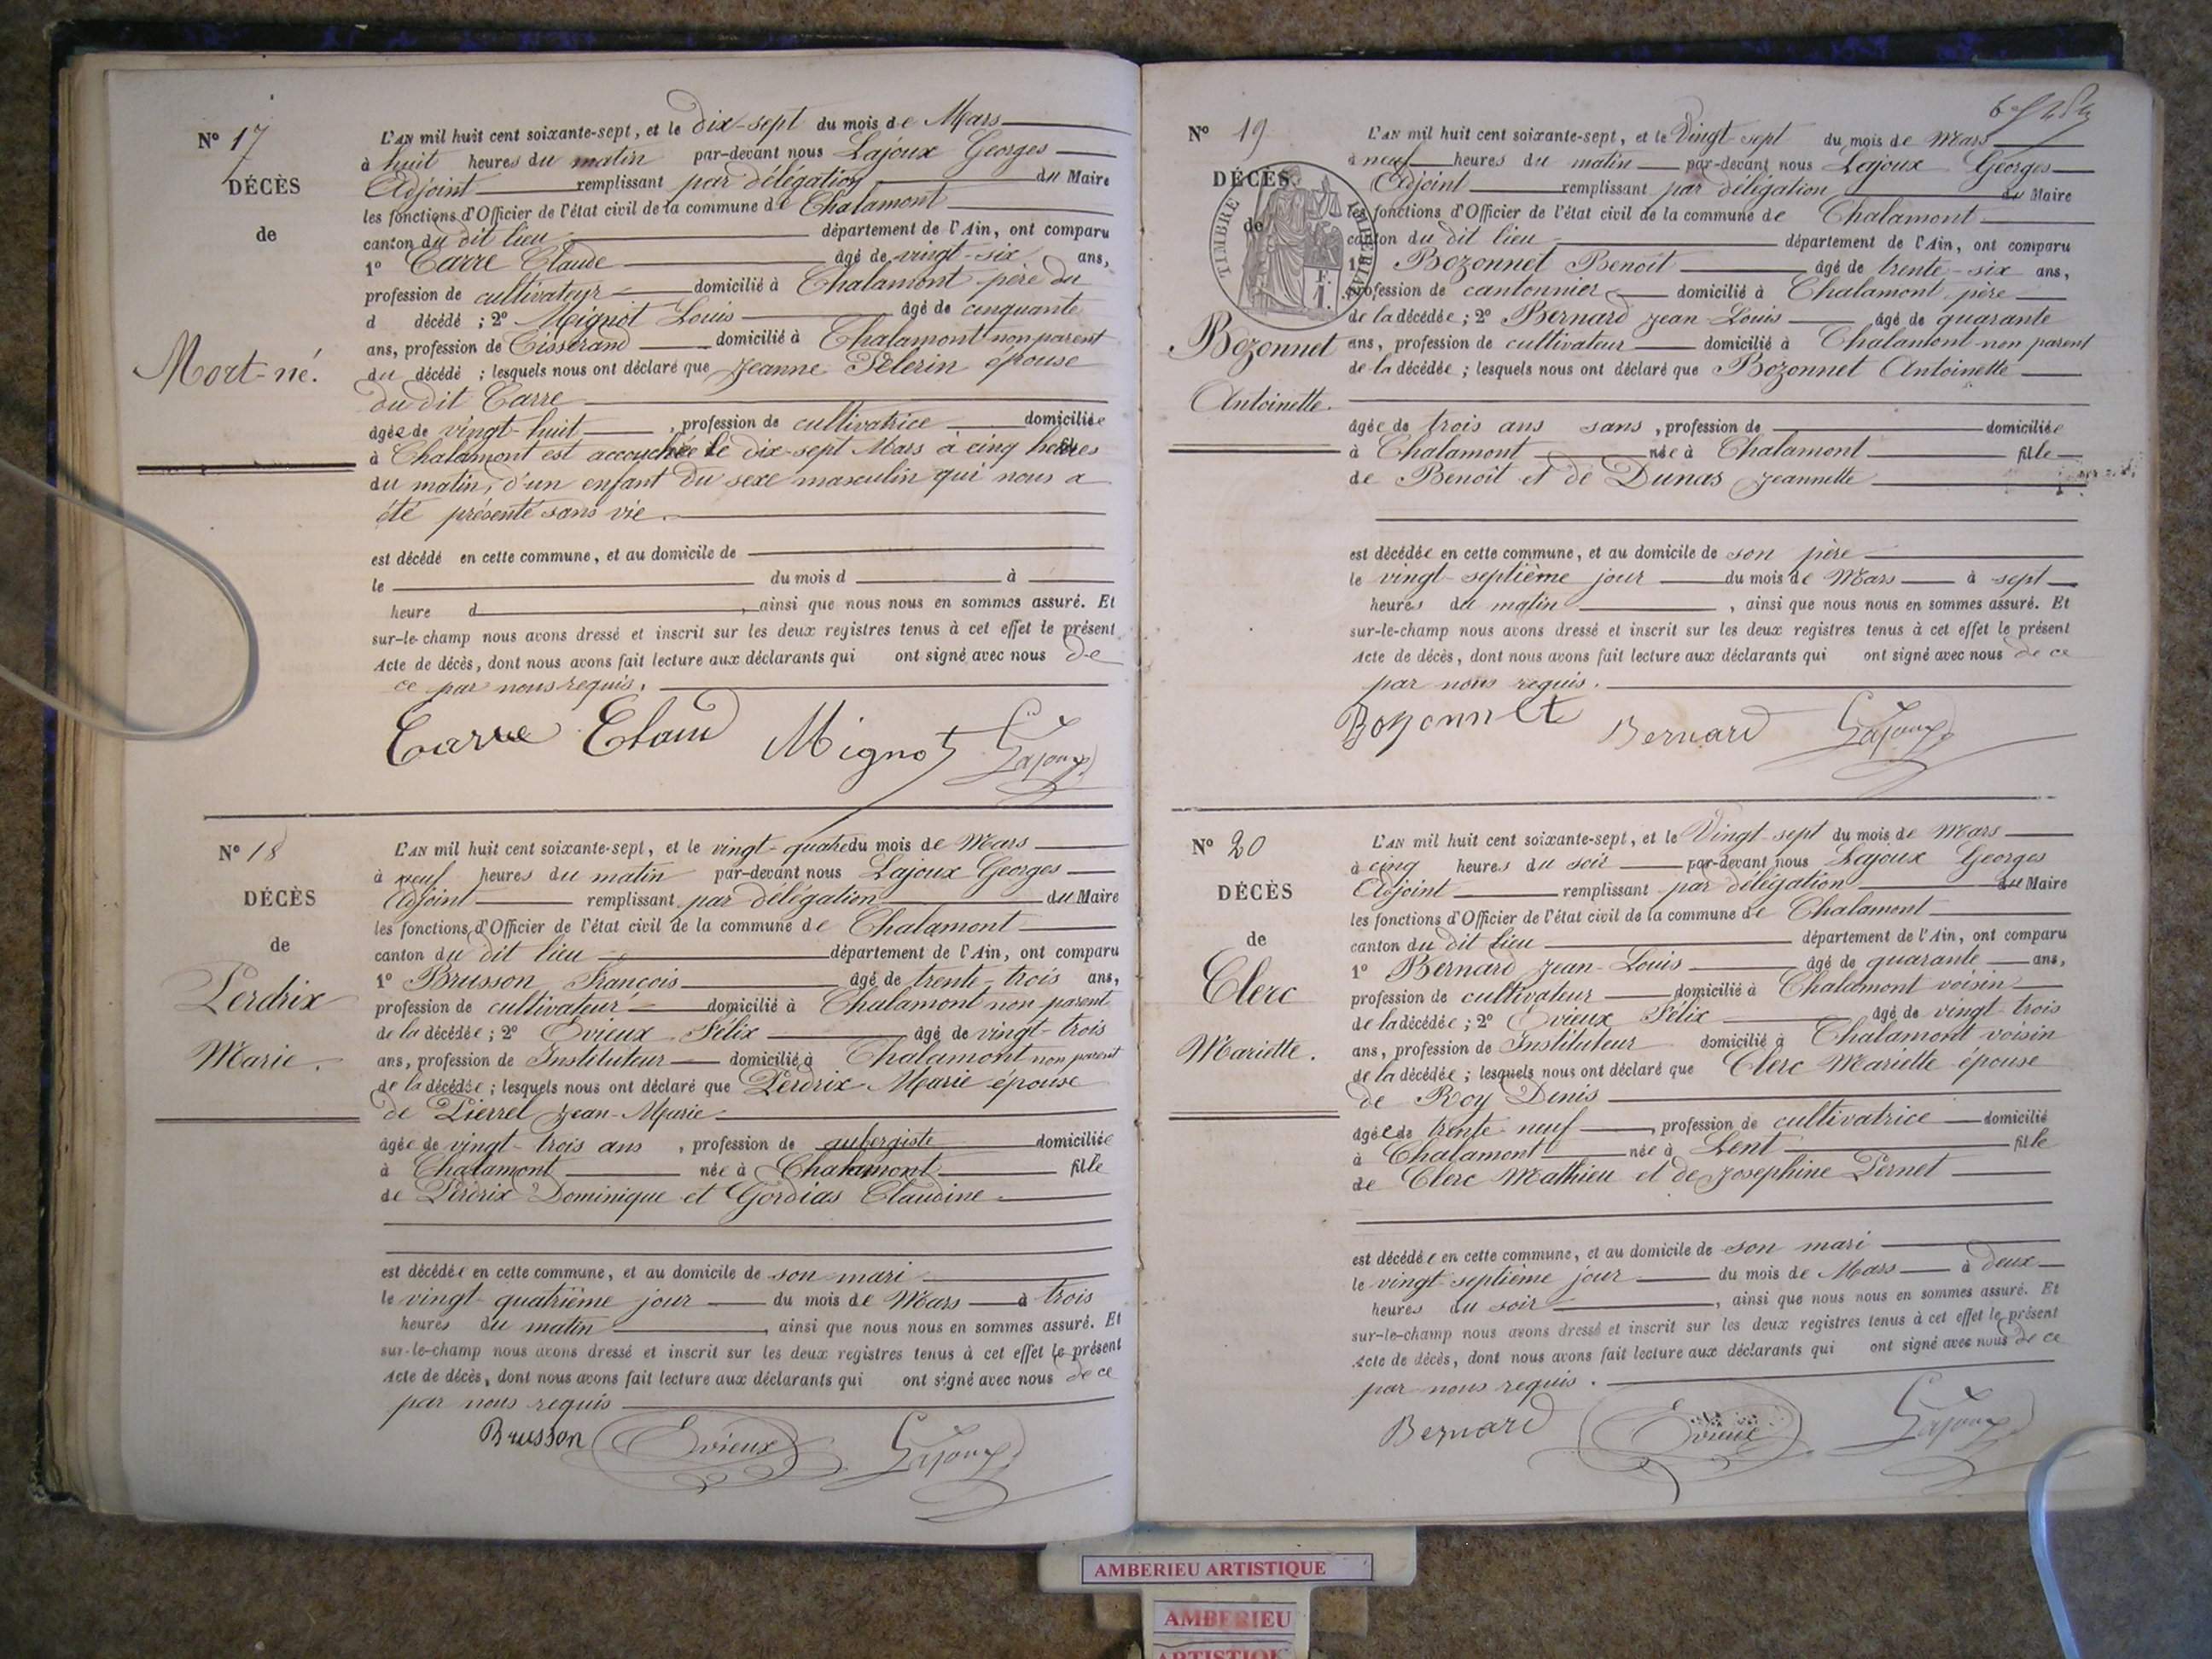 N° 17
DÉCÈS
de
Mort-né.
L'AN mil huit cent soixante-sept, et le dix-sept du mois de Mars
à huit heures du matin par-devant nous Lajoux Georges
Adjoint remplissant par délégation du Maire
les fonctions d'Officier de l'état civil de la commune de Chalamont
canton du dit lieu département de l'Ain, ont comparu
1° Carre Claude âgé de vingt-six ans,
profession de cultivateur domicilié à Chalamont père du
d décédé ; 2° Mignot Louis âgé de cinquante
ans, profession de Tisserand domicilié à Chalamont non parent
du décédé ; lesquels nous ont déclaré que Jeanne Pèlerin épouse
du dit Carre
âgée de vingt-huit , profession de cultivatrice domiciliée
à Chalamont est accouchée le dix-sept Mars à cinq heures
du matin, d'un enfant du sexe masculin qui nous a
été présenté sans vie.
est décédé en cette commune, et au domicile de
le du mois d à
heure d , ainsi que nous nous en sommes assuré. Et
sur-le-champ nous avons dressé et inscrit sur les deux registres tenus à cet effet le présent
Acte de décès, dont nous avons fait lecture aux déclarants qui ont signé avec nous de
ce par nous requis.
Carre Claud Mignot Lajoux
N° 18
DÉCÈS
de
Perdrix
Marie.
L'AN mil huit cent soixante-sept, et le vingt-quatre du mois de Mars
à neuf heures du matin par-devant nous Lajoux Georges
Adjoint remplissant par délégation du Maire
les fonctions d'Officier de l'état civil de la commune de Chalamont
canton du dit lieu département de l'Ain, ont comparu
1° Brusson François âgé de trente-trois ans,
profession de cultivateur domicilié à Chalamont non parent
de la décédée ; 2° Evieux Félix âgé de vingt-trois
ans, profession de Instituteur domicilié à Chalamont non parent
de la décédée ; lesquels nous ont déclaré que Perdrix Marie épouse
de Pierrel Jean-Marie
âgée de vingt-trois ans , profession de aubergiste domiciliée
à Chalamont née à Chalamont fille
de Perdrix Dominique et Gordias Claudine
est décédée en cette commune, et au domicile de son mari
le vingt-quatrième jour du mois de Mars à trois
heures du matin , ainsi que nous nous en sommes assuré. Et
sur-le-champ nous avons dressé et inscrit sur les deux registres tenus à cet effet le présent
Acte de décès, dont nous avons fait lecture aux déclarants qui ont signé avec nous de ce
par nous requis
Brusson Evieux Lajoux
N° 19
DÉCÈS
de
TIMBRE
Bozonnet
Antoinette.
L'AN mil huit cent soixante-sept, et le Vingt-sept du mois de Mars
à neuf heures du matin par-devant nous Lajoux Georges
Adjoint remplissant par délégation du Maire
les fonctions d'Officier de l'état civil de la commune de Chalamont
canton du dit lieu département de l'Ain, ont comparu
1° Bozonnet Benoit âgé de trente-six ans,
profession de cantonnier domicilié à Chalamont père
de la décédée ; 2° Bernard Jean-Louis âgé de quarante
ans, profession de cultivateur domicilié à Chalamont non parent
de la décédée ; lesquels nous ont déclaré que Bozonnet Antoinette
âgée de trois ans sans , profession de domiciliée
à Chalamont née à Chalamont fille
de Benoit et de Dunas Jeannette
est décédée en cette commune, et au domicile de son père
le vingt-septième jour du mois de Mars à sept
heures du matin , ainsi que nous nous en sommes assuré. Et
sur-le-champ nous avons dressé et inscrit sur les deux registres tenus à cet effet le présent
Acte de décès, dont nous avons fait lecture aux déclarants qui ont signé avec nous de ce
par nous requis.
Bozonnet Bernard Lajoux
N° 20
DÉCÈS
de
Clerc
Mariette.
L'AN mil huit cent soixante-sept, et le Vingt-sept du mois de Mars
à cinq heures du soir par-devant nous Lajoux Georges
Adjoint remplissant par délégation du Maire
les fonctions d'Officier de l'état civil de la commune de Chalamont
canton du dit lieu département de l'Ain, ont comparu
1° Bernard Jean-Louis âgé de quarante ans,
profession de cultivateur domicilié à Chalamont voisin
de la décédée ; 2° Evieux Félix âgé de vingt-trois
ans, profession de Instituteur domicilié à Chalamont voisin
de la décédée ; lesquels nous ont déclaré que Clerc Mariette épouse
de Roy Denis
âgée de trente-neuf , profession de cultivatrice domicilié
à Chalamont née à Lent fille
de Clerc Mathieu et de Josephine Pernet
est décédée en cette commune, et au domicile de son mari
le vingt-septième jour du mois de Mars à deux
heures du soir , ainsi que nous nous en sommes assuré. Et
sur-le-champ nous avons dressé et inscrit sur les deux registres tenus à cet effet le présent
Acte de décès, dont nous avons fait lecture aux déclarants qui ont signé avec nous de ce
par nous requis.
Bernard Evieux Lajoux
AMBERIEU ARTISTIQUE
AMBERIEU
ARTISTIQUE